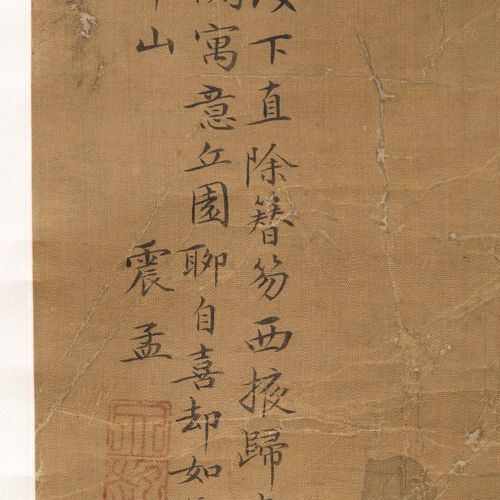 下直除簪笏西掖歸
寓意丘園聊自喜却如
山
震孟